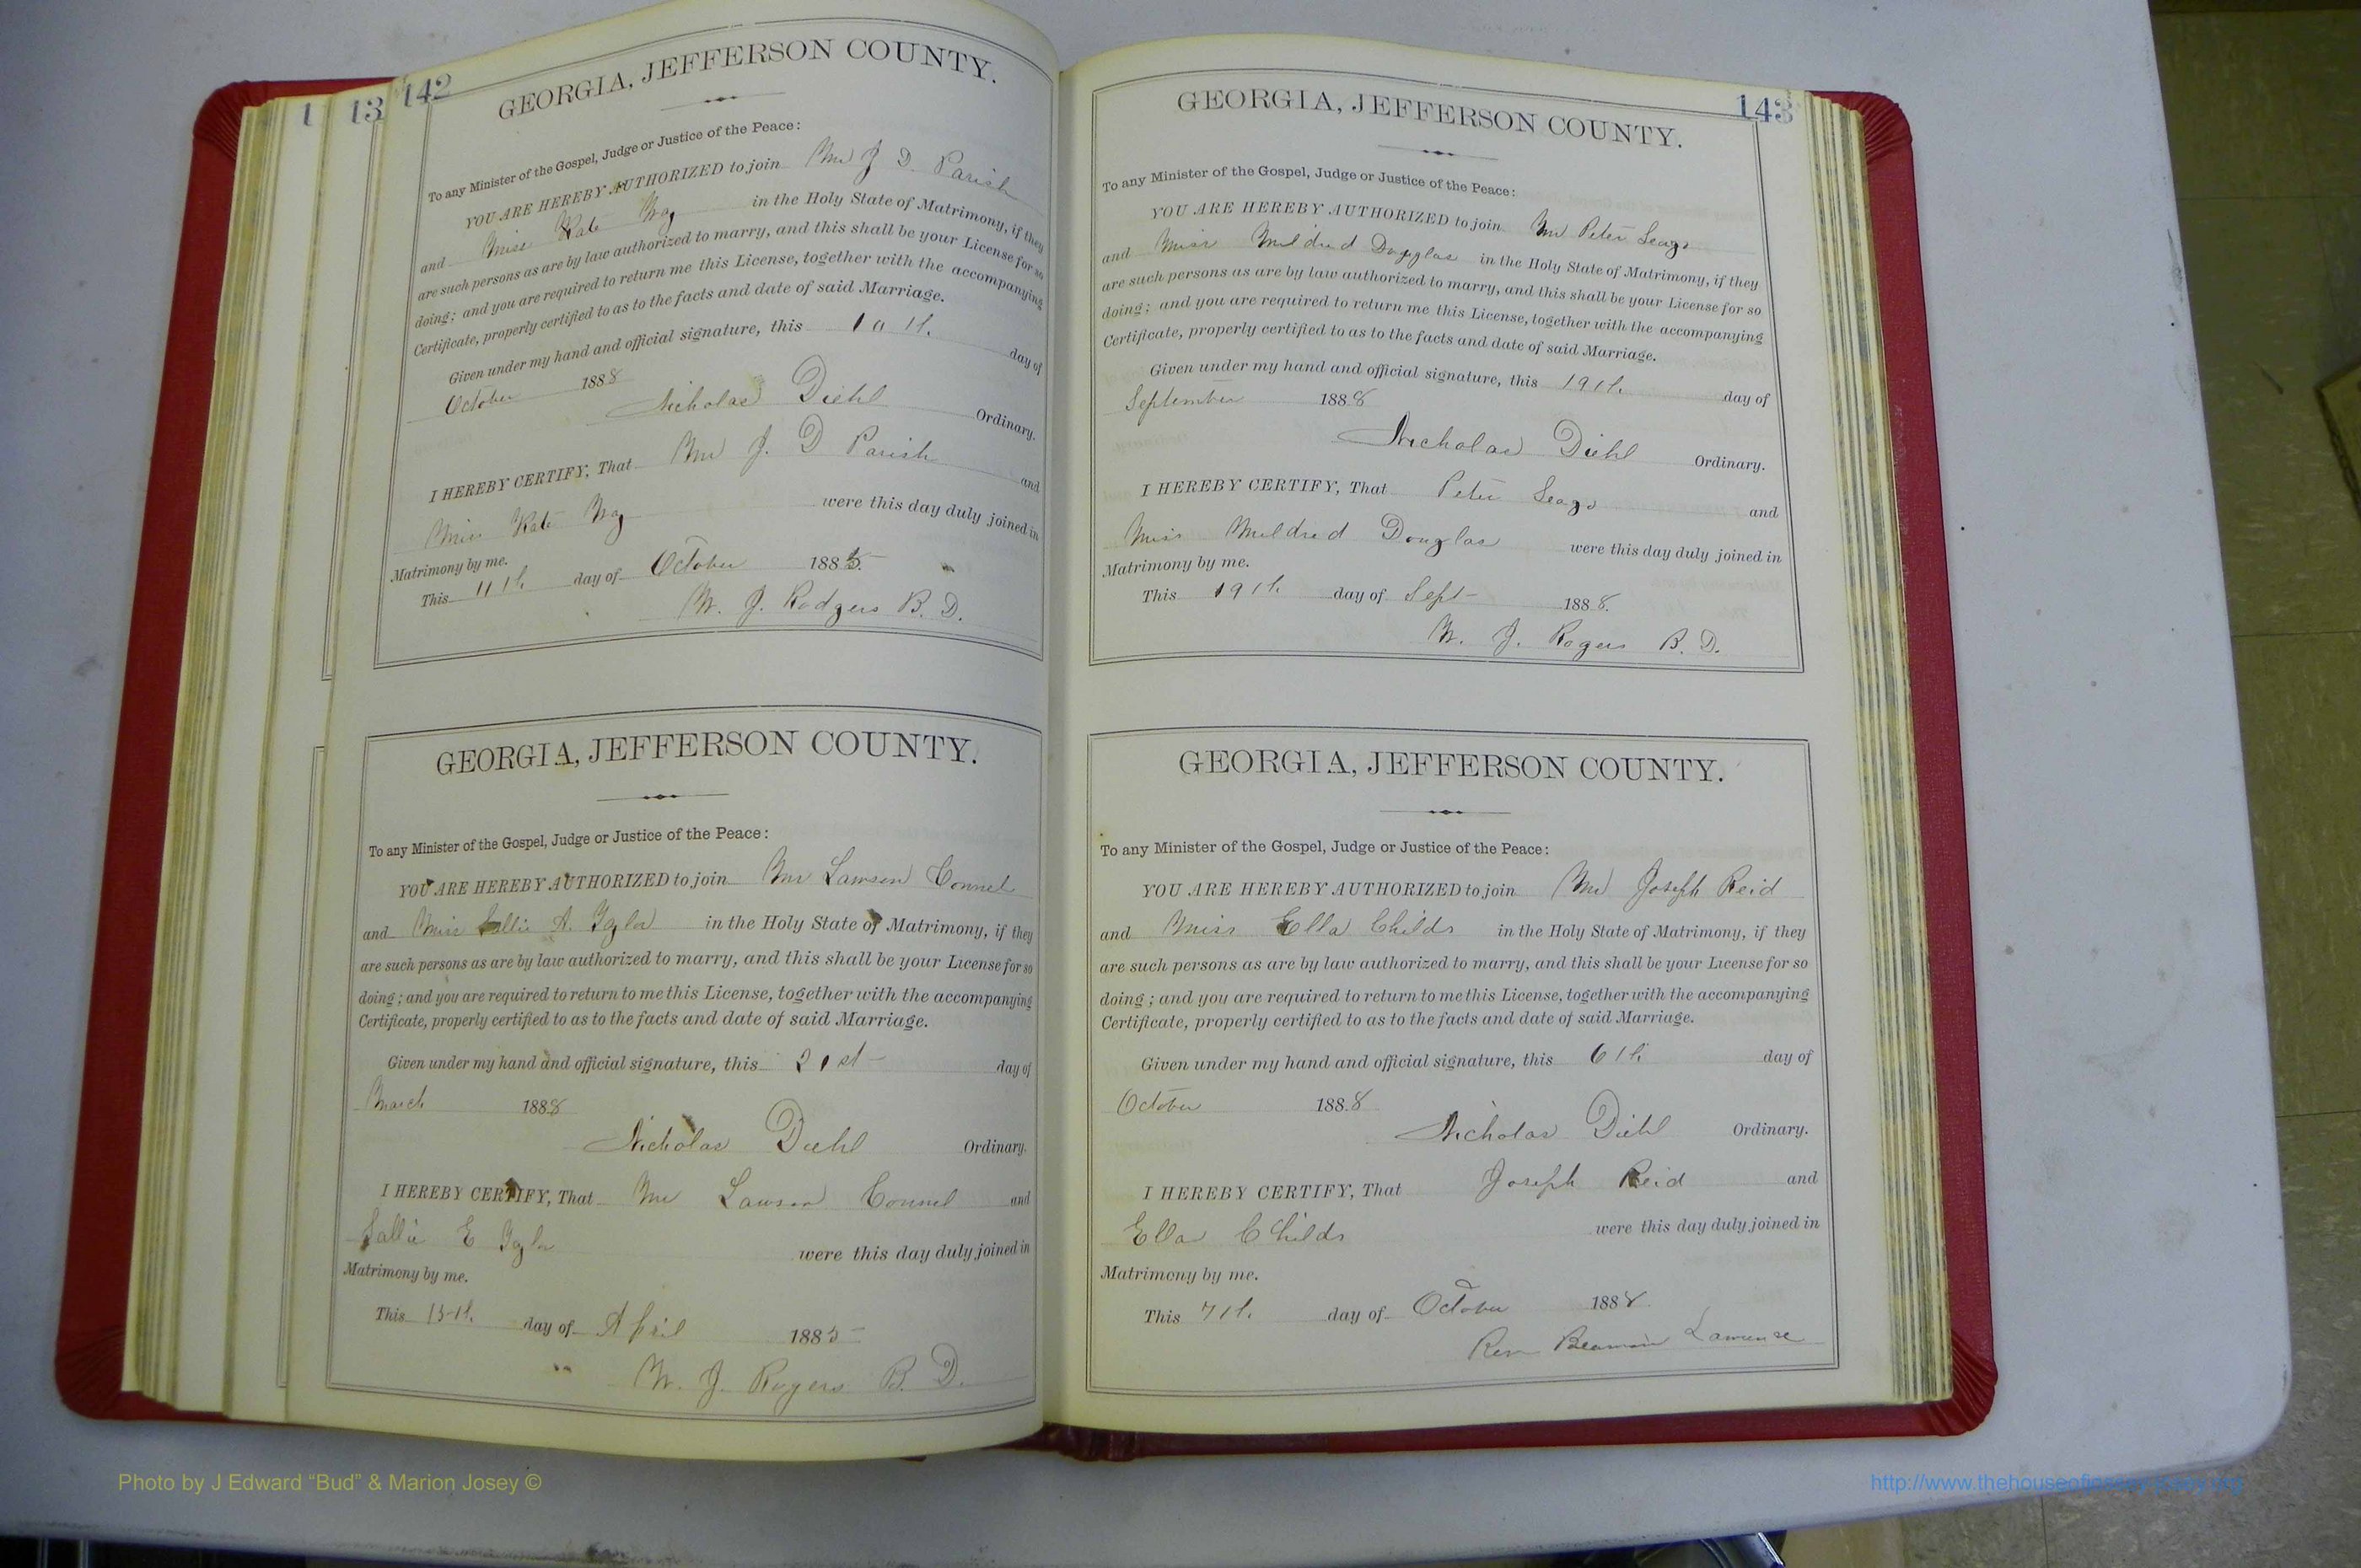 1
13
142
GEORGIA, JEFFERSON COUNTY.
To any Minister of the Gospel, Judge or Justice of the Peace:
YOU ARE HEREBY AUTHORIZED to join Mr J D. Parish
and Miss Kate in the Holy State of Matrimony, if they
are such persons as are by law authorized to marry, and this shall be your License for so
doing; and you are required to return me this License, together with the accompanying
Certificate, properly certified to as to the facts and date of said Marriage.
Given under my hand and official signature, this day of
October 1888
Nicholas Diehl Ordinary.
I HEREBY CERTIFY, That Mr J. D Parish and
Miss Kate were this day duly joined in
Matrimony by me.
This 11th day of October 188
W. J. Rodgers B. D.
GEORGIA, JEFFERSON COUNTY.
To any Minister of the Gospel, Judge or Justice of the Peace:
YOU ARE HEREBY AUTHORIZED to join Mr Lawson Connel
and Miss Sallie A. in the Holy State of Matrimony, if they
are such persons as are by law authorized to marry, and this shall be your License for so
doing; and you are required to return to me this License, together with the accompanying
Certificate, properly certified to as to the facts and date of said Marriage.
Given under my hand and official signature, this 21st day of
March 1888
Nicholas Diehl Ordinary.
I HEREBY CERTIFY, That Mr Lawson Connel and
Sallie E were this day duly joined in
Matrimony by me.
This 15th day of April 1885
W. J. Rogers B. D.
143
GEORGIA, JEFFERSON COUNTY.
To any Minister of the Gospel, Judge or Justice of the Peace:
YOU ARE HEREBY AUTHORIZED to join Mr Peter
and Miss Mildred Douglas in the Holy State of Matrimony, if they
are such persons as are by law authorized to marry, and this shall be your License for so
doing; and you are required to return me this License, together with the accompanying
Certificate, properly certified to as to the facts and date of said Marriage.
Given under my hand and official signature, this 19th day of
September 1888
Nicholas Diehl Ordinary.
I HEREBY CERTIFY, That Peter and
Miss Mildred Douglas were this day duly joined in
Matrimony by me.
This 19th day of Sept 1888.
W. J. Rogers B. D.
GEORGIA, JEFFERSON COUNTY.
To any Minister of the Gospel, Judge or Justice of the Peace:
YOU ARE HEREBY AUTHORIZED to join Mr Joseph Reid
and Miss Ella Childs in the Holy State of Matrimony, if they
are such persons as are by law authorized to marry, and this shall be your License for so
doing; and you are required to return to me this License, together with the accompanying
Certificate, properly certified to as to the facts and date of said Marriage.
Given under my hand and official signature, this 6th day of
October 1888
Nicholas Diehl Ordinary.
I HEREBY CERTIFY, That Joseph Reid and
Ella Childs were this day duly joined in
Matrimony by me.
This 7th day of October 1888
Rev Lawrence
Photo by J Edward “Bud” & Marion Josey ©